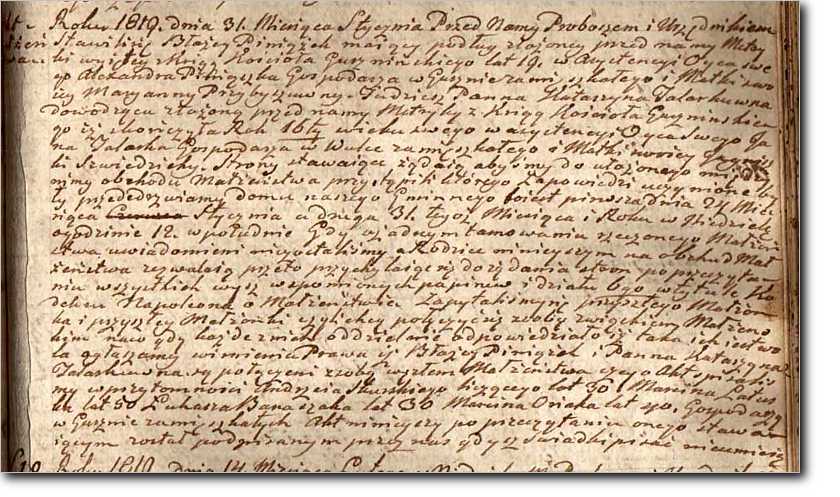 Roku 1819. dnia 31. Miesiąca Stycznia Przed Namy Proboszem i Urzędnikiem
Stawili się Błażey Pinięzek maiący podług złożoney przed namy Metry
ki wyjętey z Ksiąg Kościoła lat 19. w Asystencyi Oyca swe
go Alexandra Pinięszka Gospodarza w Guźnie zamieszkałego i Matki swo
iey Maryanny Przybyszewny. Tudzież Panna Katarzyna Talarkuwna
dowodząca złożoną przed namy Metryką z Ksiąg Kościoła
go iż skończyła Rok 16ty wieku swego w asystencyi Oyca Swego Ja
na Talarka Gospodarza w Wulce zamieszkałego i Matki swoiey
ki Szwiedziehy. Strony stawaiące żądaią abyśmy do ułożonego
nimy obchodu Małżeństwa przystąpili którego Zapowiedzi uczynione by
ły przededrzwiamy domu naszego Gminnego to iest pierwsza dnia 24 Mie
siąca Stycznia a druga 31. tegoż Miesiąca i Roku w Niedziele
o godzinie 12. w południe Gdy o żadnym tamowaniu rzeczonego Małżeń
stwa uwiadomieni niezostaliśmy a Rodzice ninieyszym na obchod Mał
żeństwa zezwalaią przeto przychylaiąc się do żądania stron po przeczyta
niu wszystkich wyż wspomionych papirów i działu 6go w tytule Ko
deksu Napoleona o Małżeństwie Zapytaliśmy się przyszłego Małżon
ka i przyszłey Małżonki czyli chcą połączyć się z sobą związkiem Małżeń
skim na co gdy każde z nich oddzielnie odpowiedziało iż taka ich iest wo
la ogłaszamy w imieniu Prawa iż Błażey Pinięzek i Panna Katarzyna
Talarkuwna są połączeni z sobą węzłem Małżeństwa czego Akt spisaliś
my w przytomności Andrzeia liczącego lat 30 Marcina
lat 50 Łukasza Banaszaka lat 30 Marcina Osiaka lat Gospodarzy
w Guźnie zamieszkałych Akt ninieyszy po przeczytaniu onego stawa
iącym został podpisanym przez nas gdyż świadki pisać nieumieią
Roku 1819. dnia 14 Miesiąca